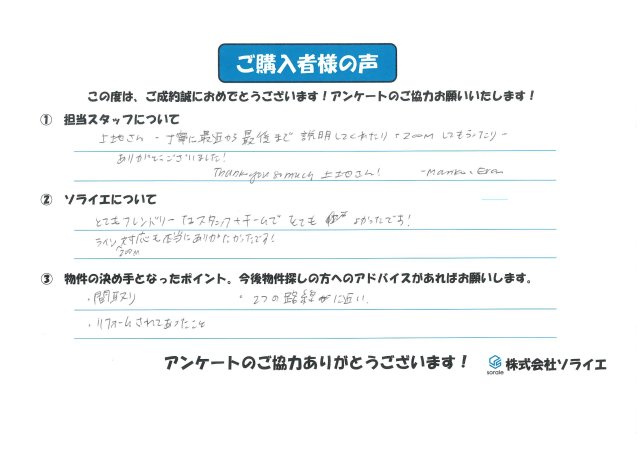 ご購入者様の声
この度は、ご成約誠におめでとうございます！アンケートのご協力お願いいたします！
① 担当スタッフについて
上地さん - 丁寧に最近から最後まで 説明してくれたり、ZOOMしてもらったり -
ありがとうございました！
Thank you so much 上地さん！
② ソライエについて
とてもフレンドリーなスタッフ+チームで とても よかったです！
ライン 対応も本当にありがたかったです！
ZOOM
③ 物件の決め手となったポイント。今後物件探しの方へのアドバイスがあればお願いします。
・間取り ・2つの路線が近い
・リフォームされてあったこと
アンケートのご協力ありがとうございます！ 株式会社ソライエ
soraie